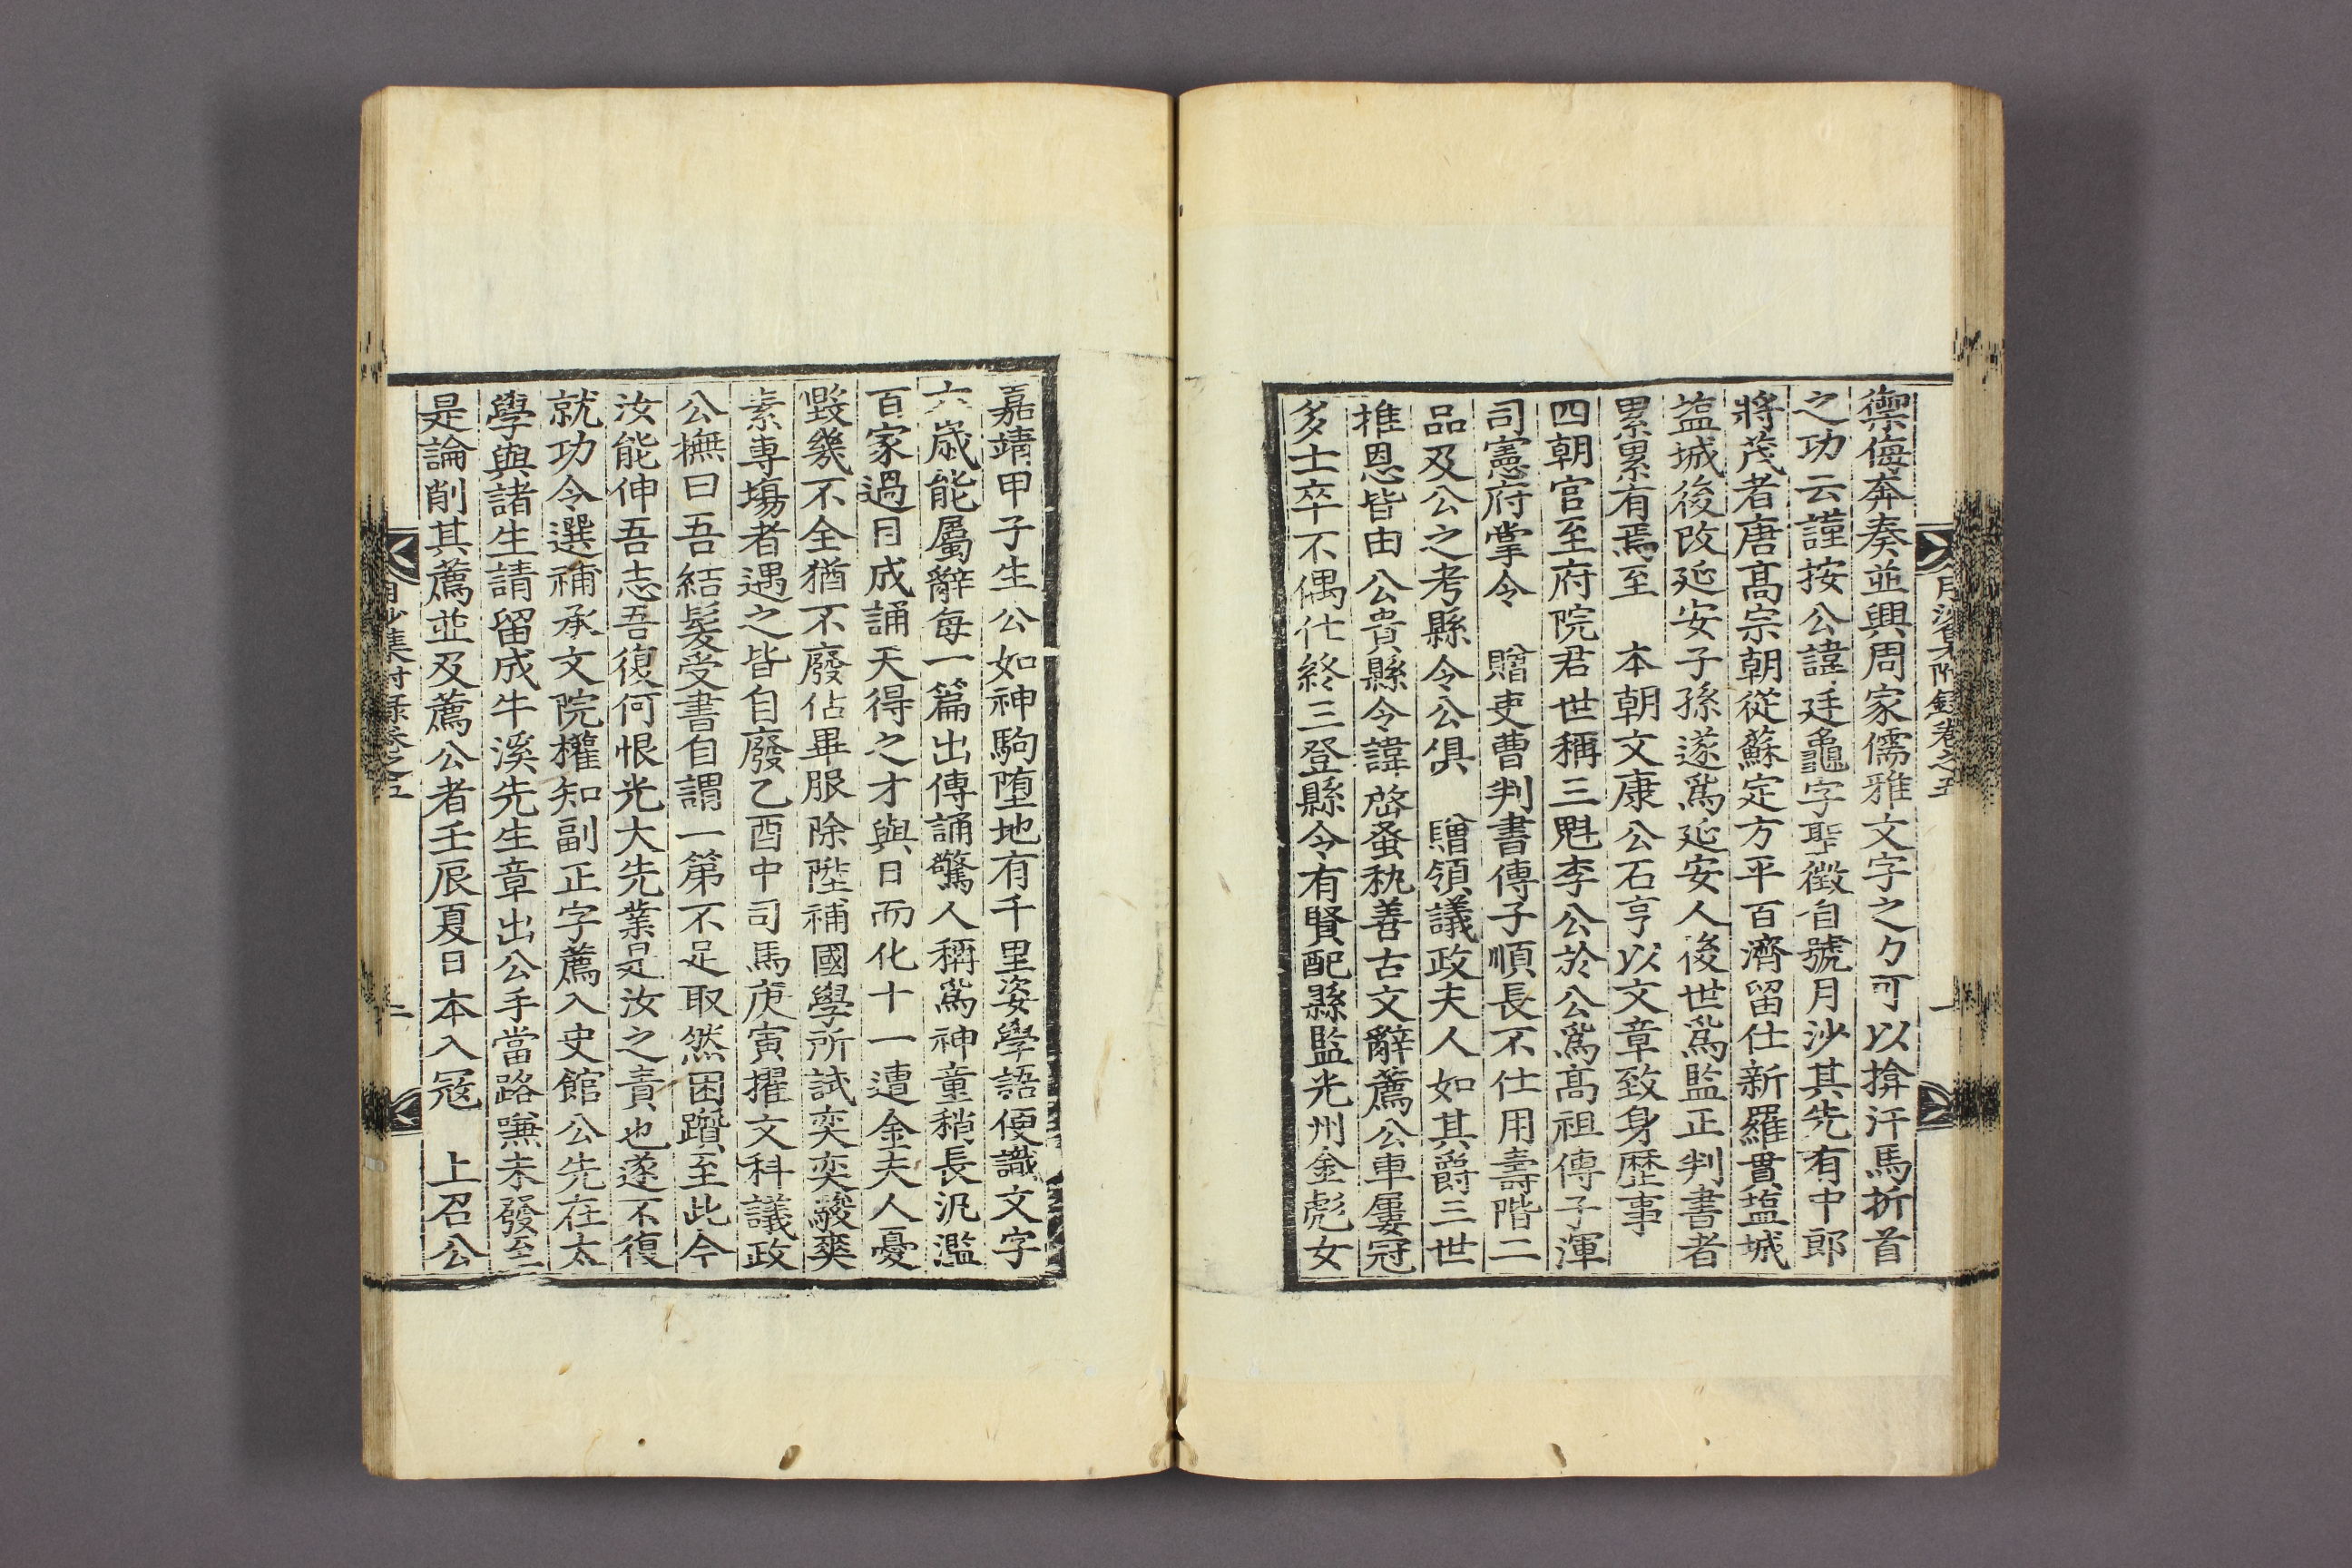 禦侮奔奏並興周家儒雅文字之力可以揜汗馬折首
之功云謹按公諱廷龜字聖徵自號月沙其先有中郎
將茂者唐高宗朝從蘇定方平百濟留仕新羅貫塩城
塩城後改延安子孫遂爲延安人後世爲監正判書者
累累有焉至 本朝文康公石亨以文章致身歷事
四朝官至府院君世稱三魁李公於公爲高祖傳子渾
司憲府掌令 贈吏曹判書傳子順長不仕用壽階二
品及公之考縣令公俱 贈領議政夫人如其爵三世
推恩皆由公貴縣令諱啓蚤執善古文辭薦公車屢冠
多士卒不偶仕終三登縣令有賢配縣監光州金彪女
月沙集附錄卷之五
一
嘉靖甲子生公如神駒堕地有千里姿學語便識文字
六歲能屬辭每一篇出傳誦驚人稱爲神童稍長汎濫
百家過目成誦天得之才與日而化十一遭金夫人憂
毀幾不全猶不廢佔畢服除陞補國學所試奕奕駿爽
素專塲者遇之皆自廢乙酉中司馬庚寅擢文科議政
公撫曰吾結髮受書自謂一第不足取然困躓至此今
汝能伸吾志吾復何恨光大先業是汝之責也遂不復
就功令選補承文院權知副正字薦入史館公先在太
學與諸生請留成牛溪先生章出公手當路嗛未發至
是論削其薦並及薦公者壬辰夏日本入寇 上召公
月沙集附錄卷之五
二